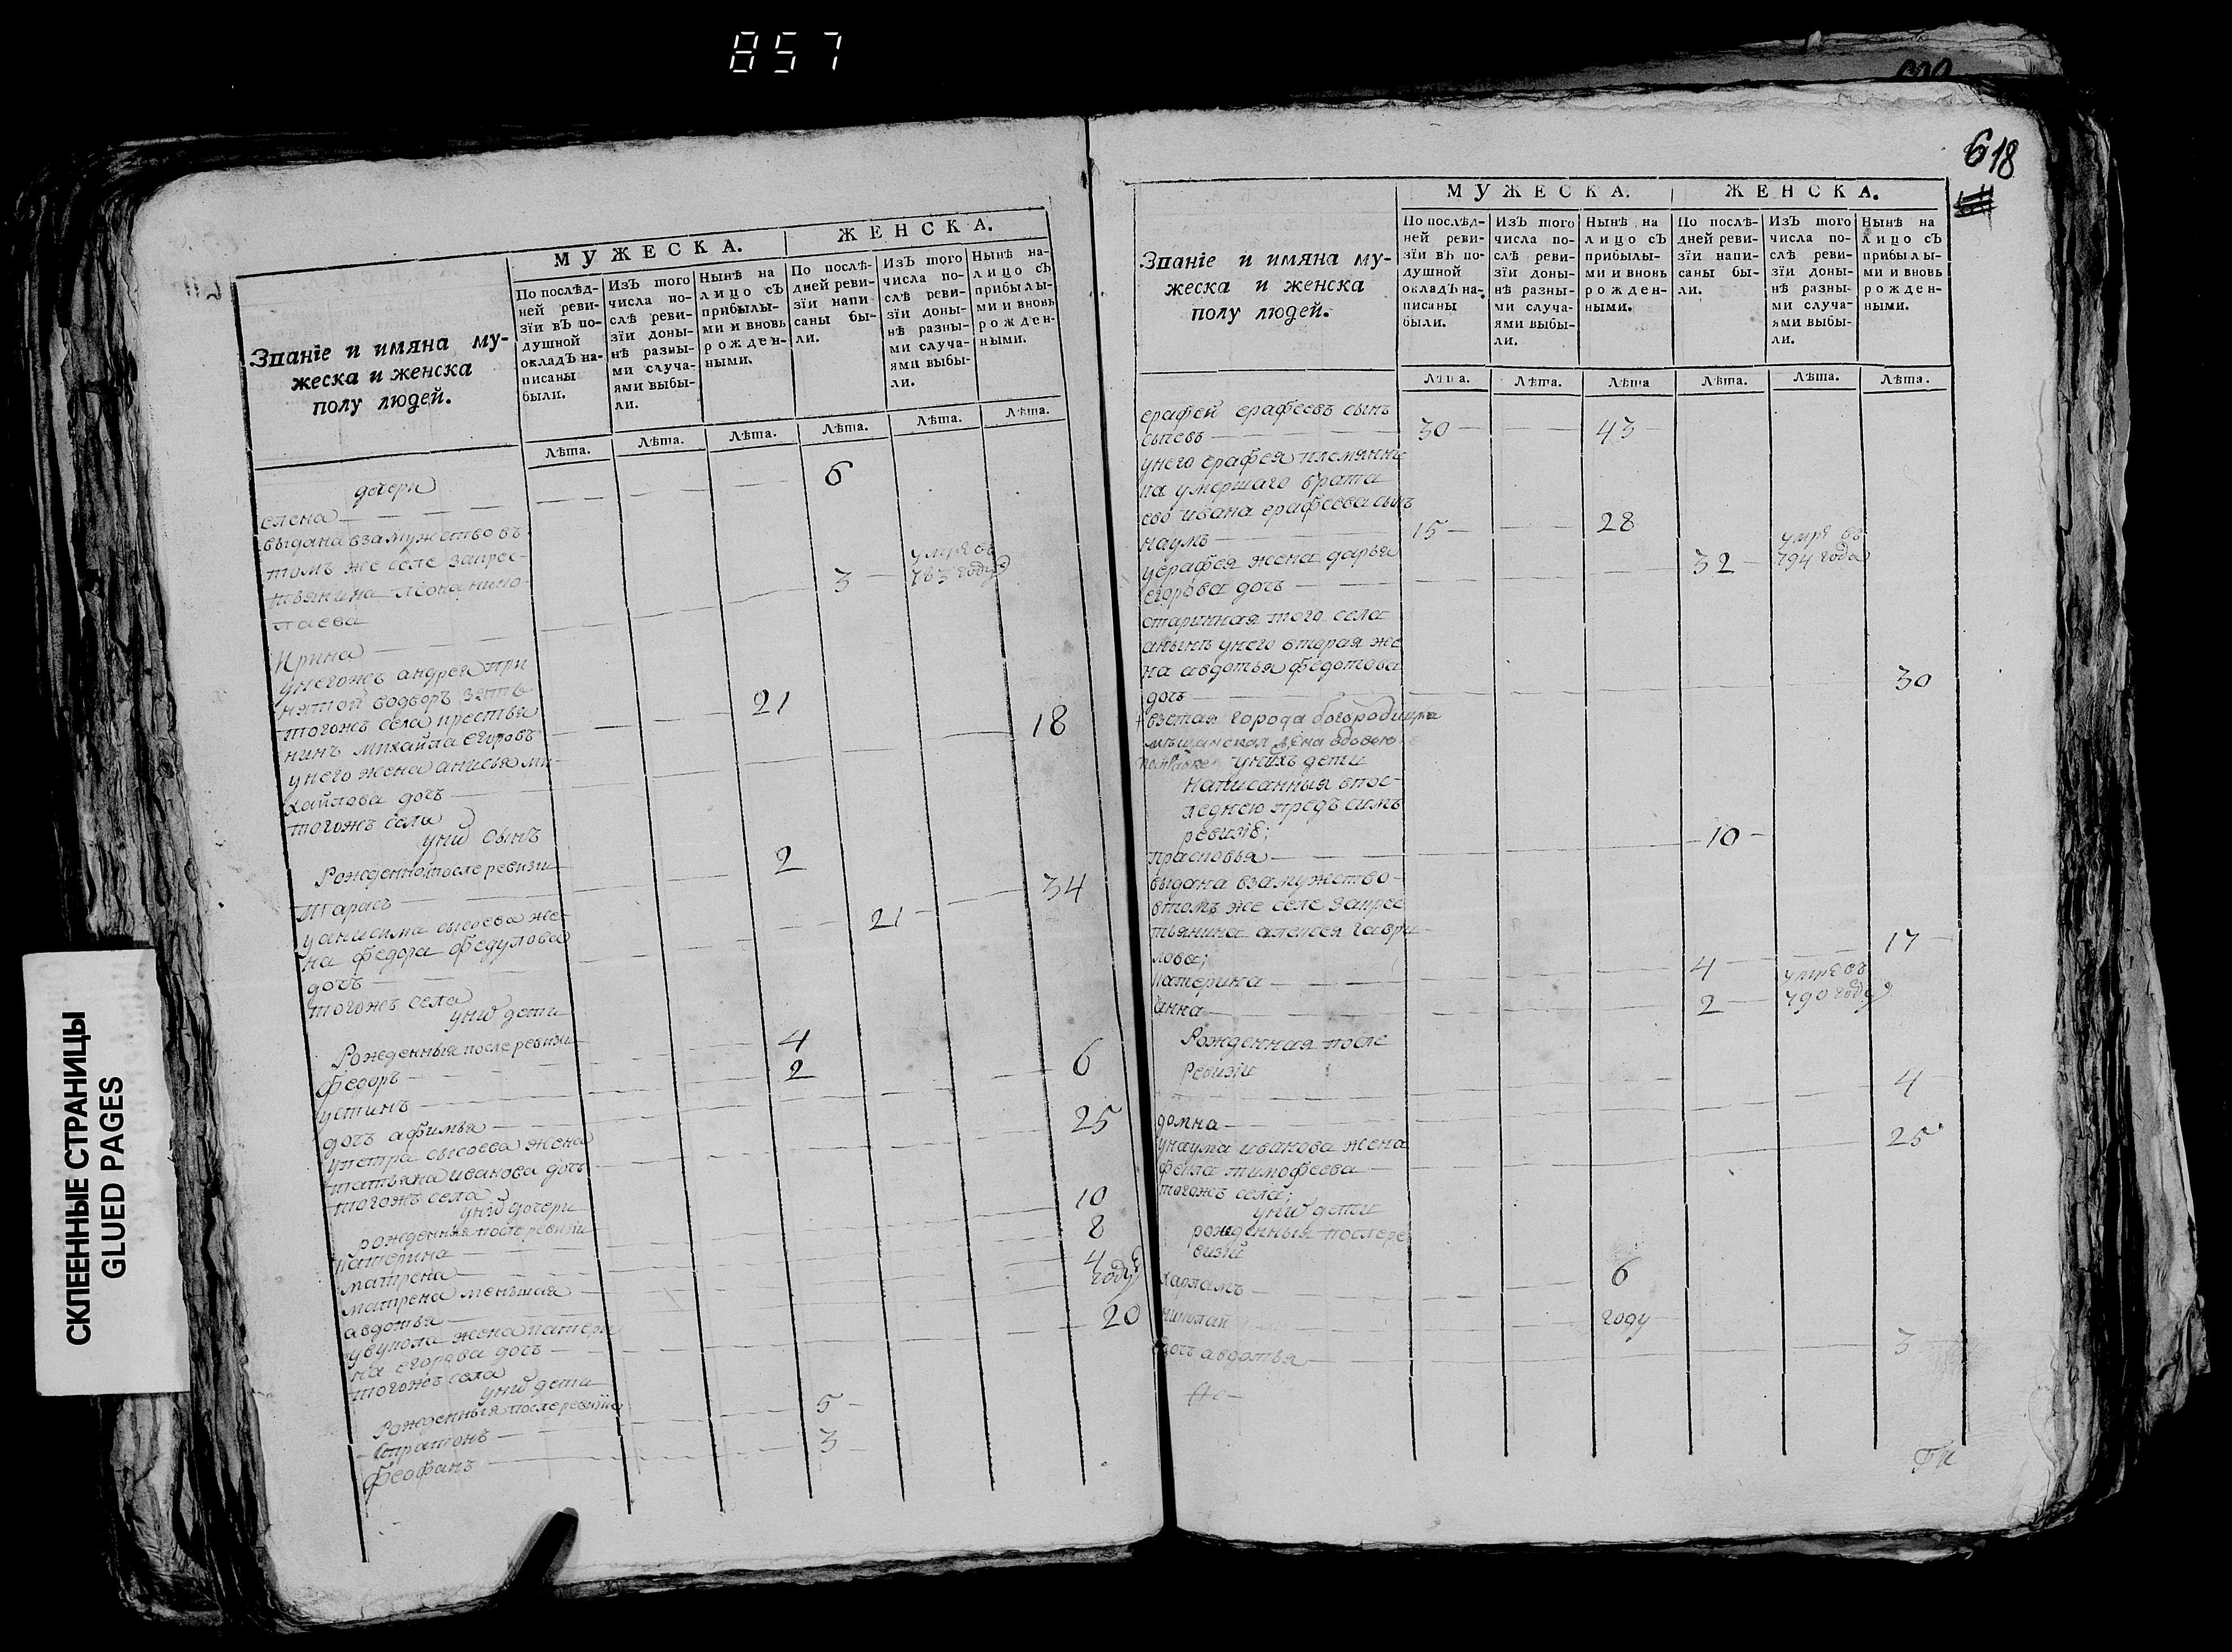 857
618
СКЛЕЕННЫЕ СТРАНИЦЫ
GLUED PAGES
Званіе и имяна му-
жеска и женска
полу людей.
МУЖЕСКА.
ЖЕНСКА.
По послѣд-
ней реви-
зїи въ по-
душной
окладъ на-
писаны
были.
Изъ того
числа по-
слѣ реви-
зїи доны-
нѣ разны-
ми случа-
ями выбы-
ли.
Нынѣ на
лицо съ
прибылы-
ми и вновь
рожден-
ными.
По послѣ-
дней реви-
зїи напи-
саны бы-
ли.
Изъ того
числа по-
слѣ реви-
зїи доны-
нѣ разны-
ми случа-
ями выбы-
ли.
Нынѣ на-
лицо съ
прибылы-
ми и вновь
рожден-
ными.
Лѣта. Лѣта. Лѣта. Лѣта. Лѣта. Лѣта.
дочери
елена 6
выдана взамужство въ
томъ же селе закрес-
тьянина нико-
лаева
Ирина 3 умре въ 783 году
унегожъ андрея при
нятой водворъ зять
тогожъ села крестья
нинъ михайла егоровъ 21
унего жена анисья ми
хайлова дочь 18
тогожъ села
унихъ сынъ
Рожденной после ревизии
тарасъ 2
уанисима сысоева же
на федора федулова
дочь 21 34
тогожъ села
унихъ дети
Рожденныя после ревизии
федоръ 4
устинъ 2
дочь афимья 6
упетра сысоева жена
татьяна иванова дочь 25
тогожъ села
унихъ дочери
рожденныя после ревизии
катерина 10
матрена 8
матрена меньшая 4
авдотья году
увукола жена катери
на егорова дочь 20
тогожъ села
унихъ дети
Рожденныя после ревизии
5
феофанъ 3
Званіе и имяна му-
жеска и женска
полу людей.
МУЖЕСКА.
ЖЕНСКА.
По послѣд-
ней реви-
зїи въ по-
душной
окладъ на-
писаны
были.
Изъ того
числа по-
слѣ реви-
зїи доны-
нѣ разны-
ми случа-
ями выбы-
ли.
Нынѣ на
лицо съ
прибылы-
ми и вновь
рожден-
ными.
По послѣ-
дней реви-
зїи напи-
саны бы-
ли.
Изъ того
числа по-
слѣ реви-
зїи доны-
нѣ разны-
ми случа-
ями выбы-
ли.
Нынѣ на
лицо съ
прибылы-
ми и вновь
рожден-
ными.
Лѣта. Лѣта. Лѣта Лѣта. Лѣта. Лѣта.
ерафей ерафеевъ сынъ
30 43
унего ерафея племянни
ка умершаго брата
ево ивана ерафеева сынъ
наумъ 15 28
уерафея жена дарья
егорова дочь 32 умре въ 794 года
старинная того села
анынѣ унего вторая же
на авдотья федотова
дочь 30
взетая города богородицка
унихъ дети
написанныя впос-
леднею предъ симъ
ревизіе;
прасковья 10
выдана взамужство
втомъ же селе закрес
тьянина алексея гаври
лова;
катерина 4 17
анна 2 умре въ 790 году
Рожденная после
ревизіи
домна 4
унаума иванова жена
фекла тимофеева 25
тогожъ села;
унихъ дети
рожденныя после ре
визіи
6
николай году
дочь авдотья 3